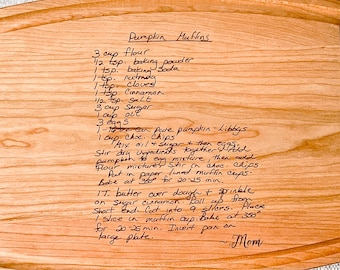 Pumpkin Muffins
3 cup flour
1/2 tsp. baking powder
1 tsp. baking soda
1 tsp. nutmeg
1 tsp. Cloves
1 tsp. Cinnamon
1/2 tsp. Salt
3 cup Sugar
1 cup oil
3 eggs
1 can Pure pumpkin - Libbys
1 cup Choc. Chips
Mix oil & Sugar & then eggs
Stir dry ingredients together & add
pumpkin to egg mixture then add
flour mixture. Stir in choc chips
Put in paper lined muffin cups.
Bake at 350° for 20-25 min
1 T. butter over dough & sprinkle
on sugar cinnamon. Roll up from
Short end. Cut into 9 slices. Place
1 slice in muffin cup. Bake at 350°
for 20-25 min. Invert pan on
large plate.
-Mom